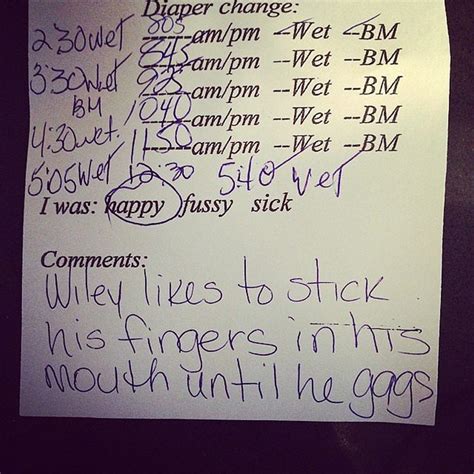 Diaper change:
2:30 wet 805 am/pm --Wet --BM
845 am/pm --Wet --BM
3:30 Wet 925 am/pm --Wet --BM
BM 1040 am/pm --Wet --BM
4:30 wet. 1150 am/pm --Wet --BM
5:05 Wet 12:30 5:40 wet
I was: happy fussy sick
Comments:
Wiley likes to stick
his fingers in his
mouth until he gags